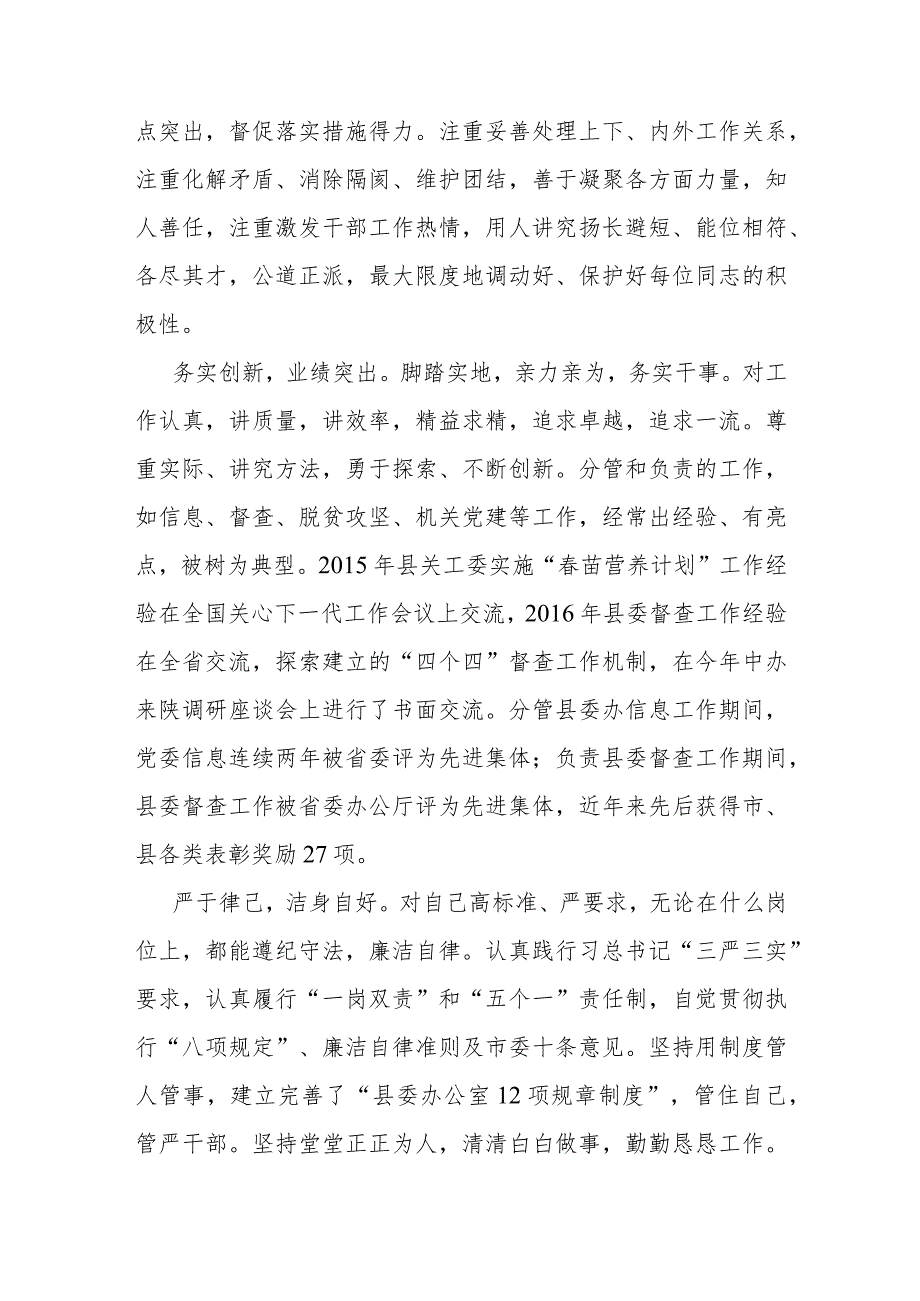 点突出，督促落实措施得力。注重妥善处理上下、内外工作关系，
注重化解矛盾、消除隔阂、维护团结，善于凝聚各方面力量，知
人善任，注重激发干部工作热情，用人讲究扬长避短、能位相符、
各尽其才，公道正派，最大限度地调动好、保护好每位同志的积
极性。
务实创新，业绩突出。脚踏实地，亲力亲为，务实干事。对工
作认真，讲质量，讲效率，精益求精，追求卓越，追求一流。尊
重实际、讲究方法，勇于探索、不断创新。分管和负责的工作，
如信息、督查、脱贫攻坚、机关党建等工作，经常出经验、有亮
点，被树为典型。2015年县关工委实施“春苗营养计划”工作经
验在全国关心下一代工作会议上交流，2016年县委督查工作经验
在全省交流，探索建立的“四个四”督查工作机制，在今年中办
来陕调研座谈会上进行了书面交流。分管县委办信息工作期间，
党委信息连续两年被省委评为先进集体；负责县委督查工作期间，
县委督查工作被省委办公厅评为先进集体，近年来先后获得市、
县各类表彰奖励27项。
严于律己，洁身自好。对自己高标准、严要求，无论在什么岗
位上，都能遵纪守法，廉洁自律。认真践行习总书记“三严三实”
要求，认真履行“一岗双责”和“五个一”责任制，自觉贯彻执
行“八项规定”、廉洁自律准则及市委十条意见。坚持用制度管
人管事，建立完善了“县委办公室12项规章制度”，管住自己，
管严干部。坚持堂堂正正为人，清清白白做事，勤勤恳恳工作。